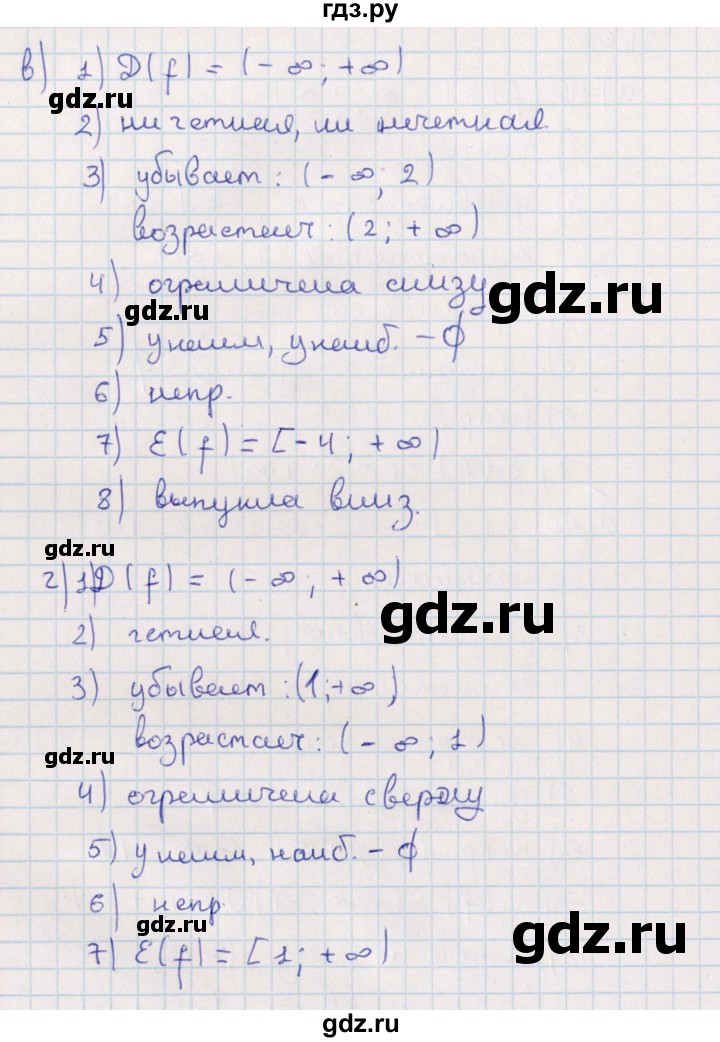 гдз.ру
в) 1) D(f) = (-∞; +∞)
gdz.ru
2) ни четная, ни нечетная.
3) убывает: (-∞; 2)
возрастает: (2; +∞)
4) ограничена снизу
gdz.ru
gdz.ru
5) y наим, y наиб. - ∅
6) непр.
7) E(f) = [-4; +∞)
8) выпукла вниз.
gdz.ru
г) 1) D(f) = (-∞; +∞)
gdz.ru
2) четная.
3) убывает: (1; +∞)
возрастает: (-∞; 1)
gdz.ru
4) ограничена сверху
5) y наим, наиб. - ∅
6) непр
gdz.ru
gdz.ru
7) E(f) = [1; +∞)
gdz.ru